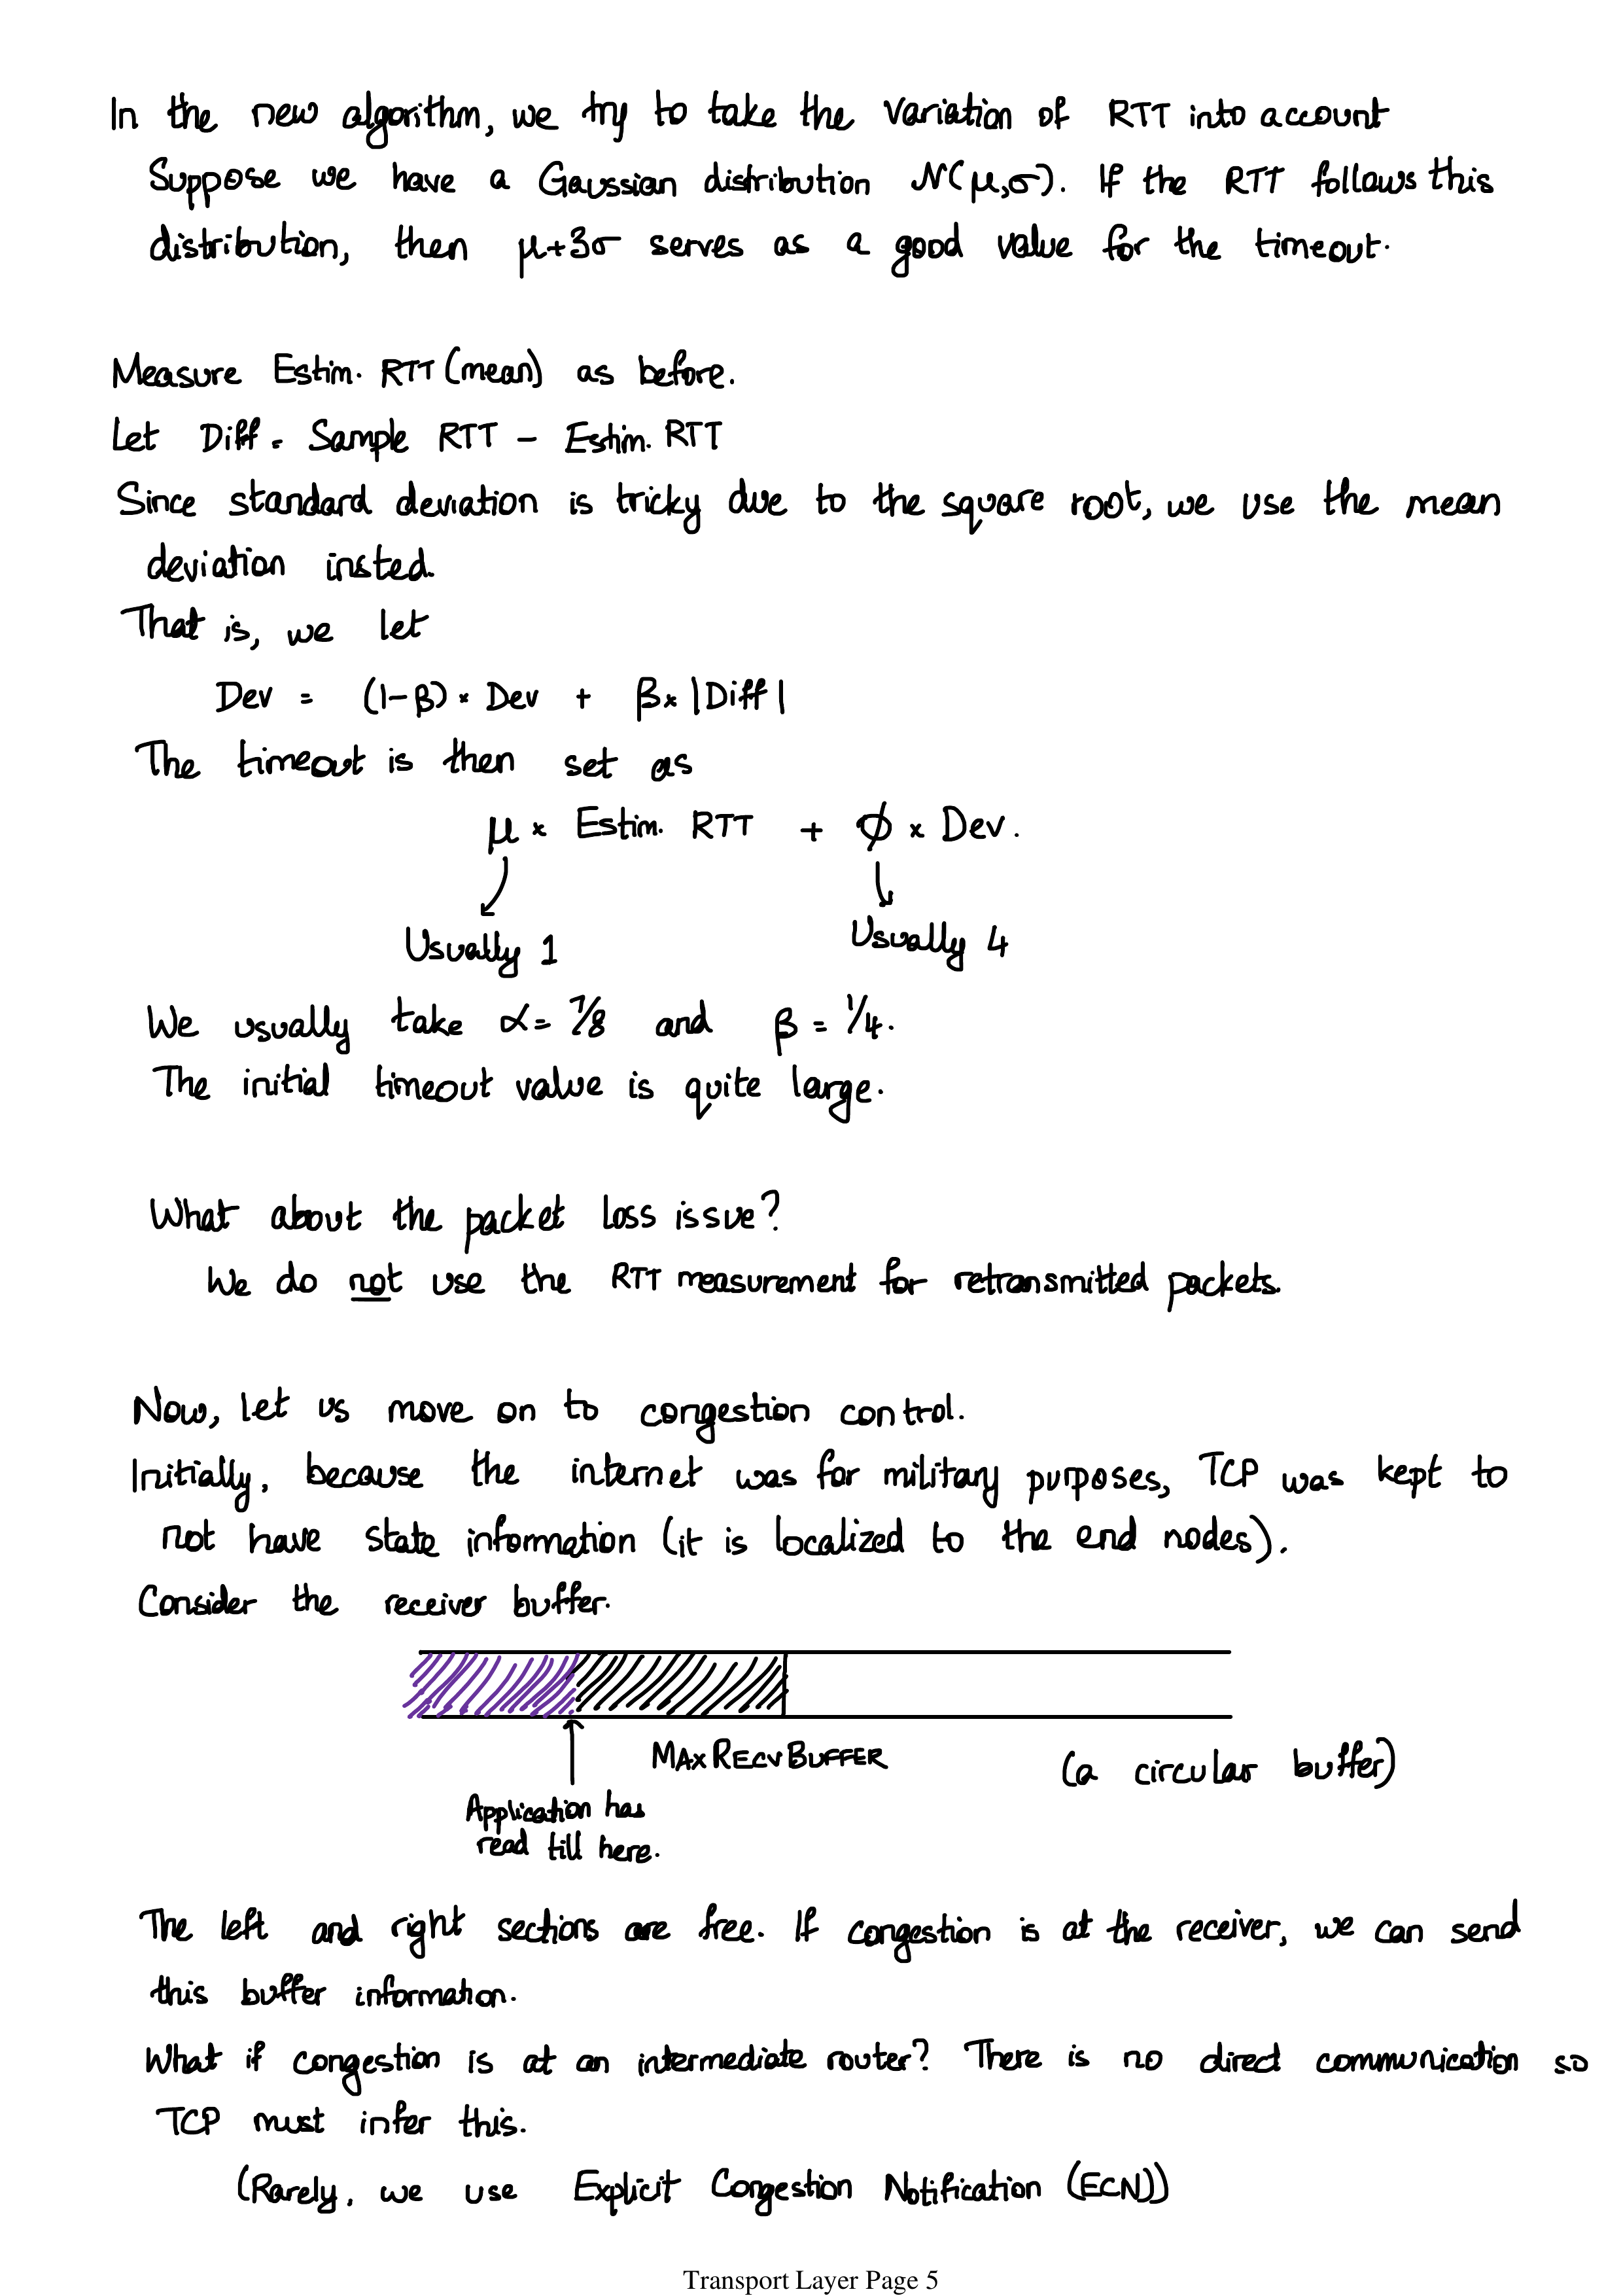 In the new algorithm, we try to take the variation of RTT into account
Suppose we have a Gaussian distribution N(μ,σ). If the RTT follows this
distribution, then μ+3σ serves as a good value for the timeout.
Measure Estim. RTT (mean) as before.
Let Diff = Sample RTT - Estim. RTT
Since standard deviation is tricky due to the square root, we use the mean
deviation insted.
That is, we let
Dev = (1-β) × Dev + β × |Diff|
The timeout is then set as
μ × Estim. RTT + φ × Dev.
Usually 1 Usually 4
We usually take α = 7/8 and β = 1/4.
The initial timeout value is quite large.
What about the packet loss issue?
We do not use the RTT measurement for retransmitted packets.
Now, let us move on to congestion control.
Initially, because the internet was for military purposes, TCP was kept to
not have state information (it is localized to the end nodes).
Consider the receiver buffer.
MAXRECVBUFFER (a circular buffer)
Application has
read till here.
The left and right sections are free. If congestion is at the receiver, we can send
this buffer information.
What if congestion is at an intermediate router? There is no direct communication so
TCP must infer this.
(Rarely, we use Explicit Congestion Notification (ECN))
Transport Layer Page 5